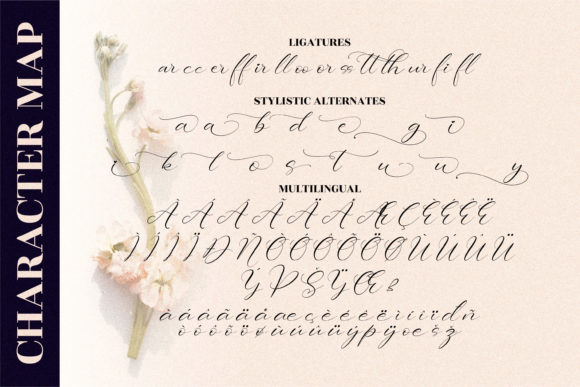 CHARACTER MAP
LIGATURES
ar cc er ff ir ll oo or ss tt th ur fi fl
STYLISTIC ALTERNATES
a a b d e g i
i k l o s t u u y
MULTILINGUAL
À Á Â Ã Ä Å Æ Ç È É Ê Ë
Ì Í Î Ï Ð Ñ Ò Ó Ô Õ Ö Ø Ù Ú Û Ü
Ý Þ Š Ÿ Œ
à á â ã ä å æ ç è é ê ë ì í î ï ð ñ
ò ó ô õ ö ø ù ú û ü ý þ ÿ œ š ž